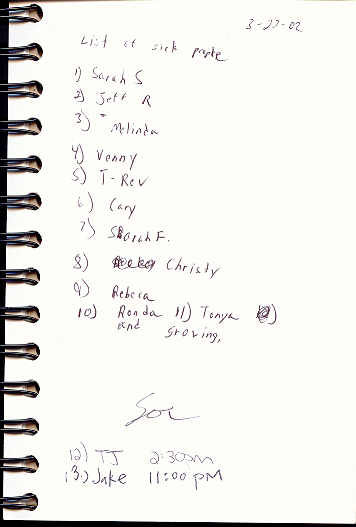 3-23-02
List of sick people
1) Sarah S
2) Jeff R
3) Melinda
4) Venny
5) T-Rev
6) Cary
7) Sarah F.
8) Christy
9) Rebeca
10) Ronda 11) Tonya
and growing,
12) TJ 2:30am
13.) Jake 11:00 pm